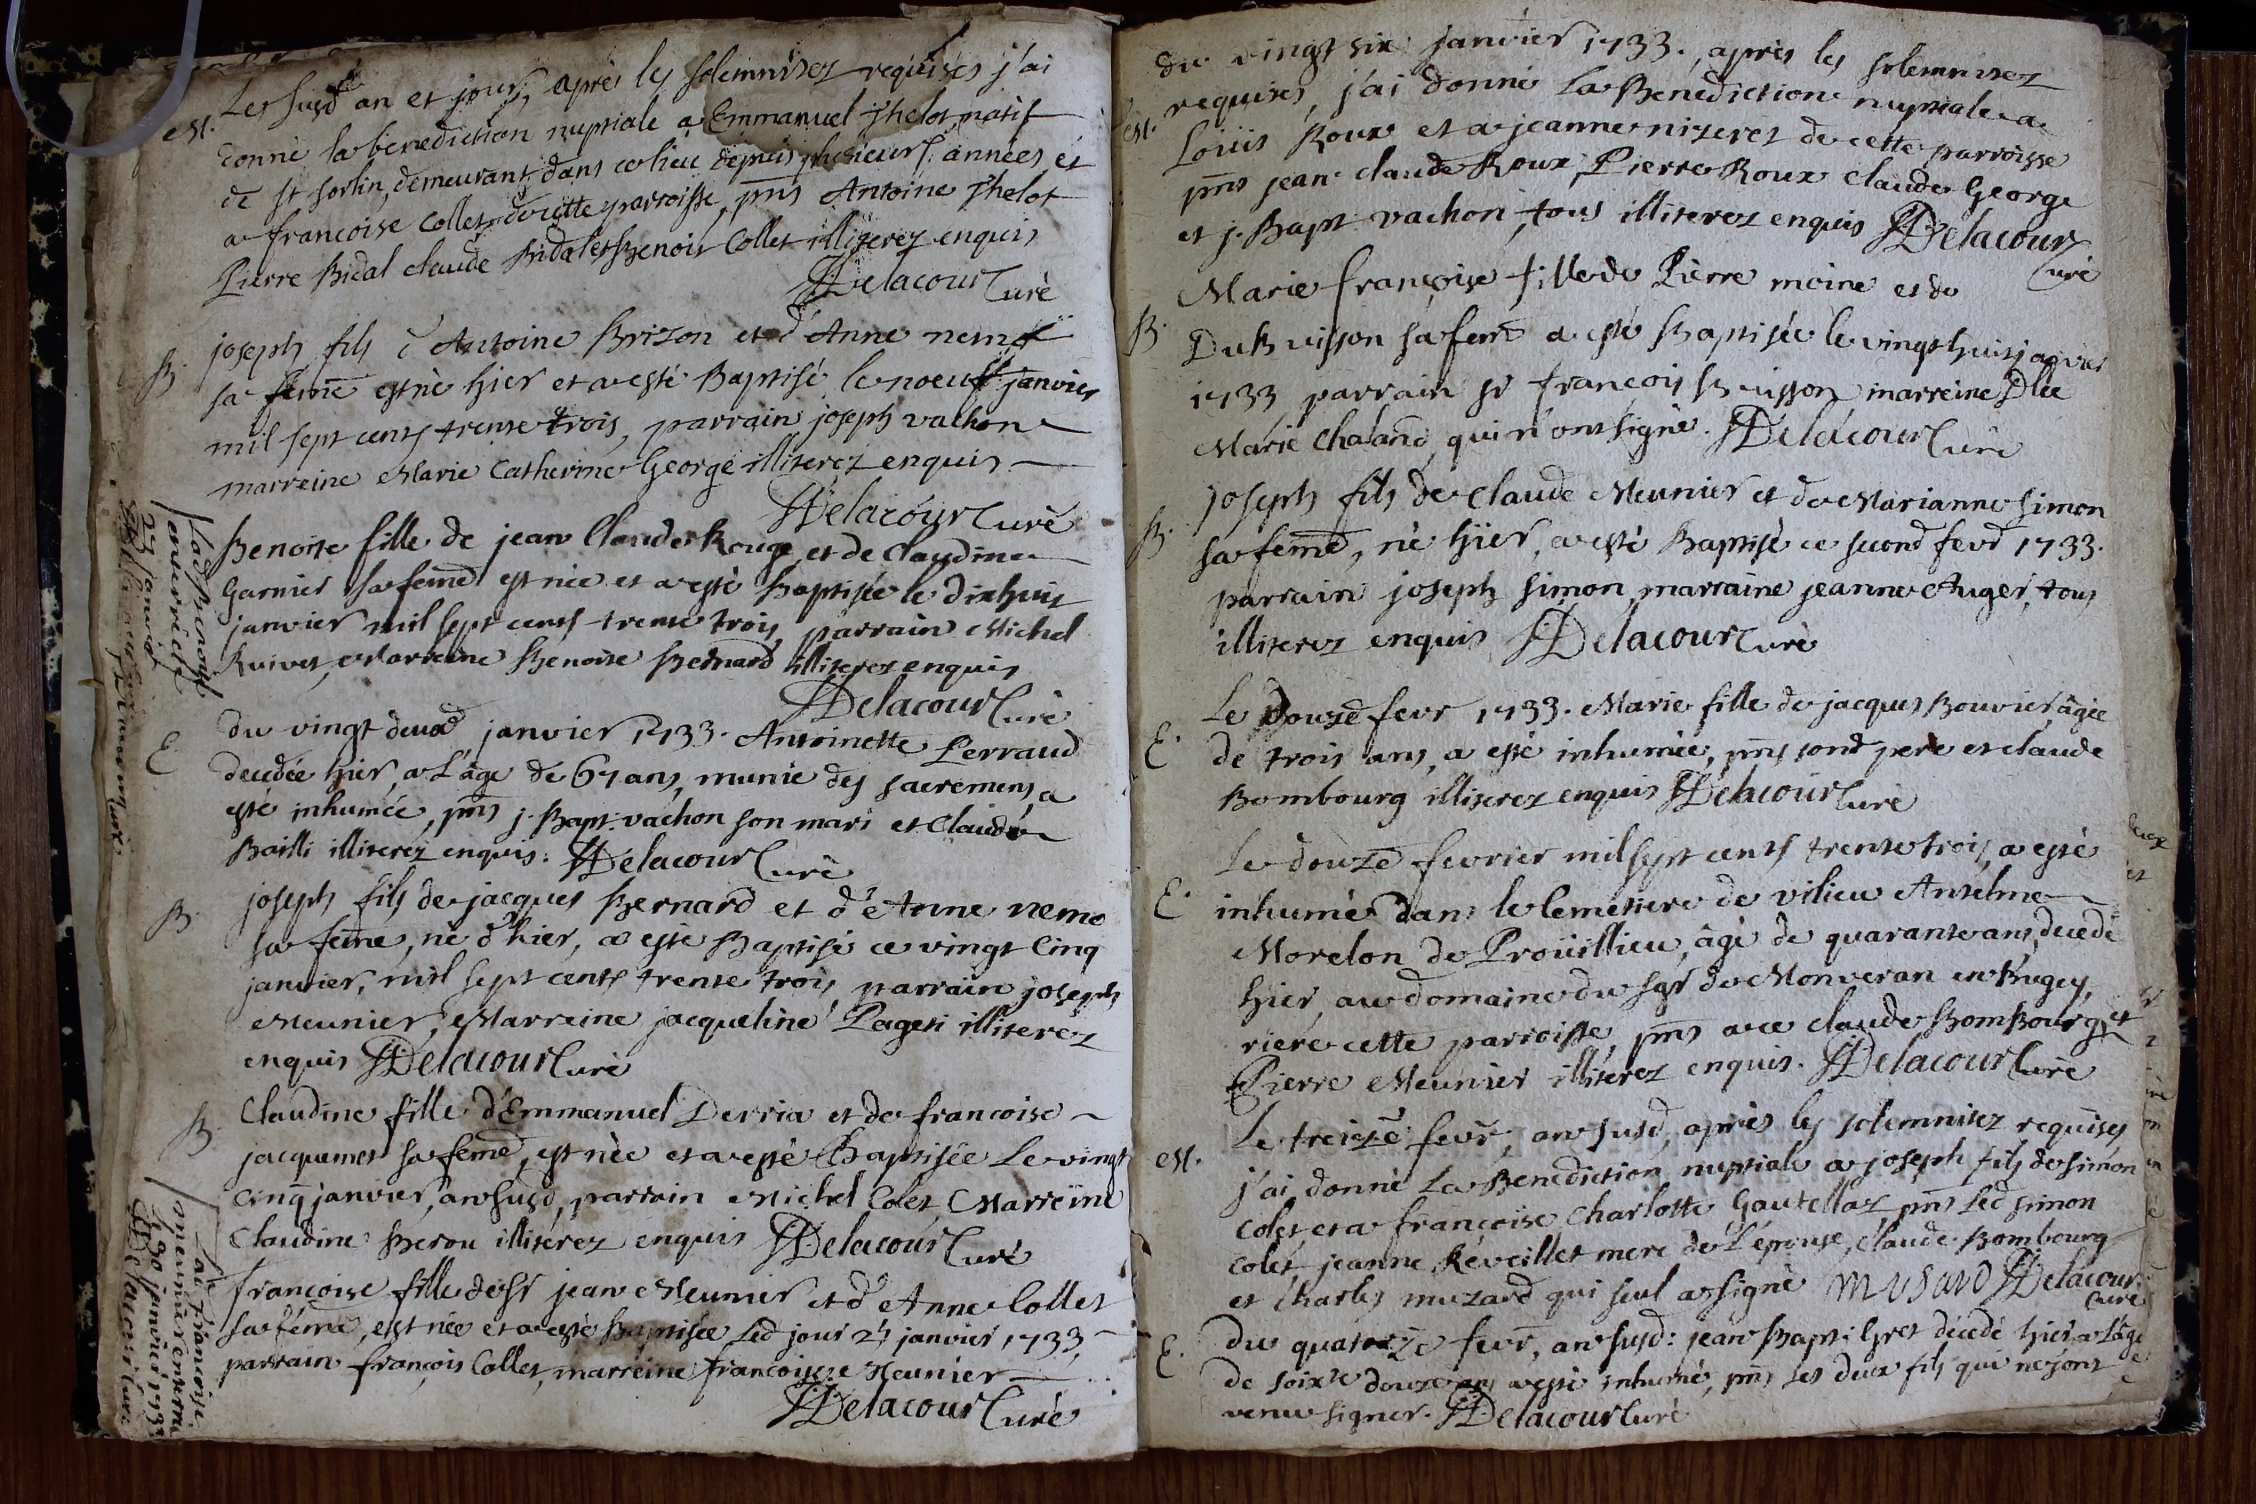 Les susd an et jour, après les solemnitez requises j'ai
M. donné la bénédiction nuptiale à Emmanuel Thelot natif
de St Sorlin, demeurant dans ce lieu depuis plusieurs années et
a francoise Collet de cette parroisse, pns Antoine Thelot
Pierre Bidal claude Bidal et Benoit Collet illiterez enquis
Delacour Curé
B. joseph fils d'Antoine Brizon et d'Anne nemoz
sa feme est né hier et a esté Baptisé le noeuf janvier
mil sept cents trente trois, parrain joseph vachon
marreine Marie Catherine George illiterez enquis
Delacour Curé
Benoite fille de jean Claude Rouge et de Claudine
Garnier sa feme est née et a esté Baptisée le dixhuit
janvier mil sept cents trente trois, parrain Michel
Ruivet, Marreine Benoite Bernard illiterez enquis
Delacour Curé
Lad Benoite
enterrée le
23 janvid
Delacour Curé
E. du vingt deux janvier 1733. Antoinette Perraud
decedée hier, a l'age de 67 ans, munie des sacremens, a
esté inhumée, pns j. Bapt. vachon son mari et Claude
Bailli illiterez enquis. Delacour Curé
B. joseph fils de jacques Bernard et d'Anne nemo
sa feme, né d'hier, a esté Baptisé ce vingt Cinq
janvier, mil sept cents trente trois, parrain joseph
Meunier, Marreine jacqueline Pageti illiterez
enquis Delacour Curé
B. Claudine fille d'Emmanuel Derria et de francoise
jacquemet sa feme, est née et a esté Baptisée Le vingt
Cinq janvier, an susd, parrain Michel Colet Marreine
Claudine Berou illiterez enquis Delacour Curé
francoise fille de Sr jean Meunier et d'Anne Collet
sa feme, est née et a esté Baptisée Led jour 27 janvier 1733,
parrain françois Collet, marreine francoise Meunier
Delacour Curé
Lad francoise
meunier enterrée
le 30 janvier 1733
Delacour Curé
du vingt six janvier 1733. après les solemnitez
M. requises, j'ai donné La Benediction nuptiale a
Loüis Roux et a jeanne nizeret de cette parroisse
pns jean claude Roux, Pierre Roux claude George
et j. Bapt. vachon, tous illiterez enquis Delacour
Curé
Marie françoise fille de Pierre moine et de
B. DuBuisson sa feme a esté Baptisée le vingt huit janvier
1733 parrain sr françois Buisson marreine Dlle
Marie Chaland, qui n'ont signé. Delacour Curé
joseph fils de claude Meunier et de Marianne Simon
B. sa feme, né hier, a esté Baptisé ce second fevr 1733.
parrain joseph simon, marraine jeanne Auger, tous
illiterez enquis Delacour Curé
Le Douze fevr 1733. Marie fille de jacques Bouvier âgée
E. de trois ans, a esté inhumée, pns sond pere et claude
Bombourg illiterez enquis Delacour Curé
Le douze fevrier mil sept cents trente trois, a esté
E. inhumé dans le Cemetiere de vilieu Anselme
Morelon de Proüillieu, âgé de quarante ans, decedé
hier, au domaine du sgr de Monveran en Bugey,
riere cette parroisse, pns a ce claude BomBourg, et
Pierre Meunier illiterez enquis. Delacour Curé
Le treize fevr, an susd, après les solemnitez requises,
M. j'ai donné La Benediction nuptiale a joseph fils de simon
Colet, et a françoise Charlotte Gautellaz, pns Led simon
Colet, jeanne Réveillet mere de L'épouse, claude Bombourg
et Charles muzard qui seul a signé MUSARD Delacour
Curé
E. du quatorze fevr, an susd: jean Bapt. Gret décedé hier a l'âge
de soixte douze ans a esté inhumé, pns ses deux fils qui ne sont
venu signer. Delacour Curé